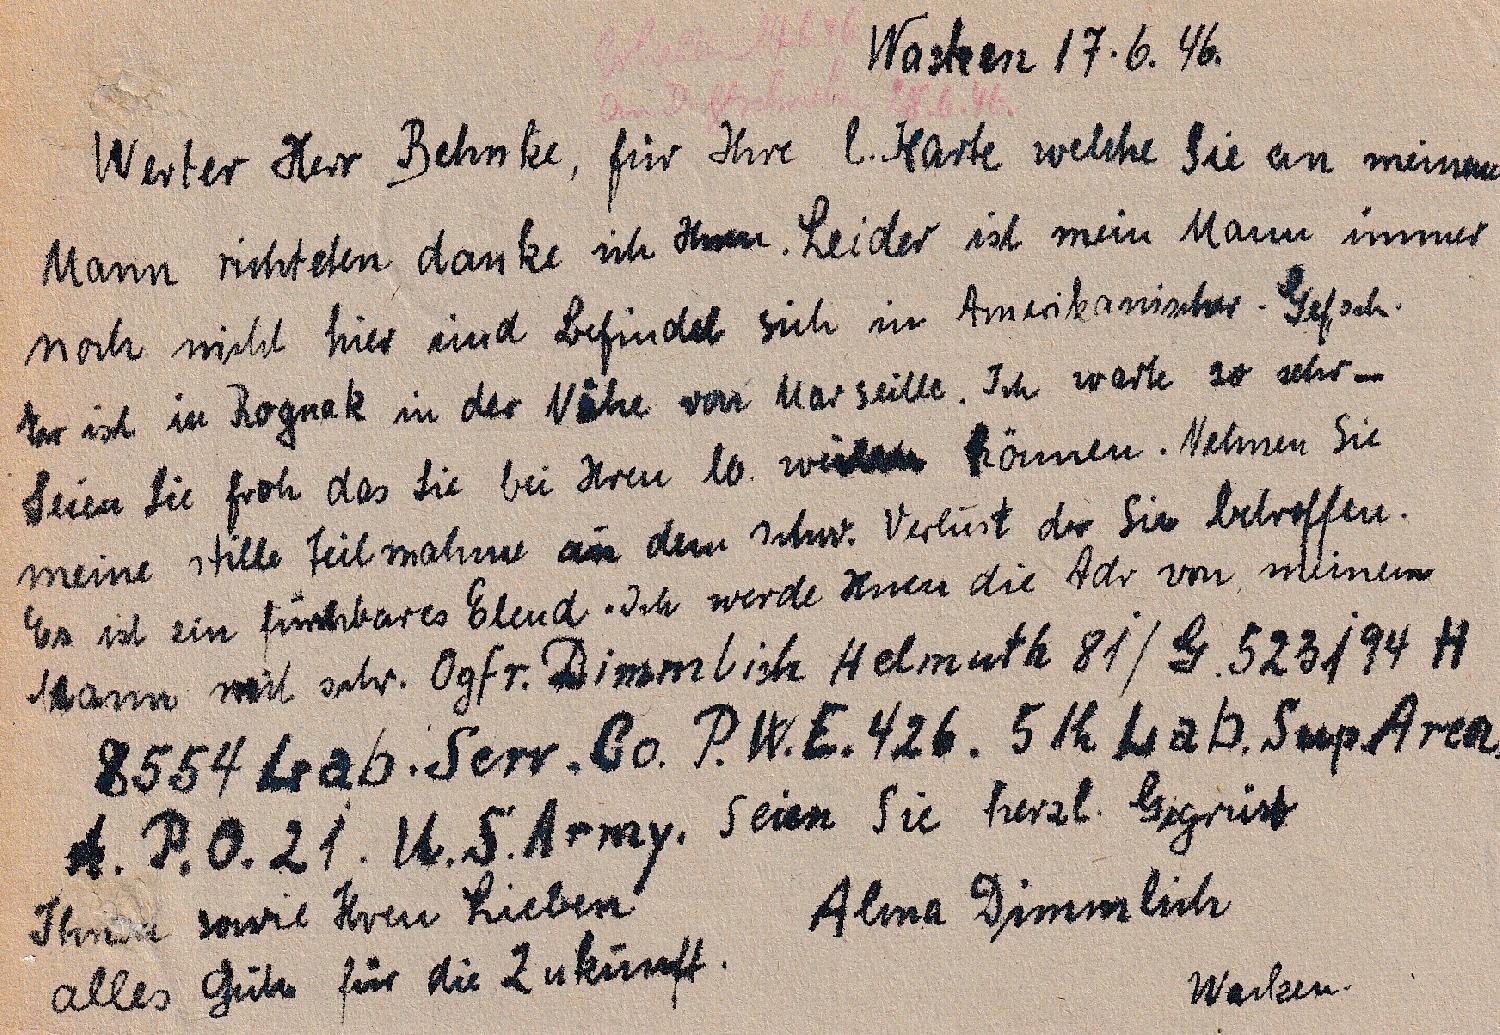 Wacken 17.6.46.
Erhalten 27.6.46
28.6.46.
Werter Herr Behnke, für Ihre l. Karte welche Sie an meinen
Mann richteten danke ich Ihnen. Leider ist mein Mann immer
noch nicht hier und befindet sich in Amerikanischer. Gefsch.
Er ist in Rognak in der Nähe von Marseille. Ich warte so sehr–
Seien Sie froh das Sie bei Ihren lb. weilen können. Nehmen Sie
meine stille Teilmahme an dem schw. Verlust der Sie betroffen.
Es ist ein fürchbares Elend. Ich werde Ihnen die Adr von meinem
Mann mit schr. Ogfr. Dimmlich Helmuth 81/G.523194 H
8554 Lab. Serv. Co. P.W.E. 426. 5th Lab. Sup. Area,
A.P.O. 21. U.S. Army. Seien Sie herzl. Gegrüst
Ihnen sowie Ihren Lieben
Alma Dimmlich
alles Gute für die Zukunft.
Wacken.